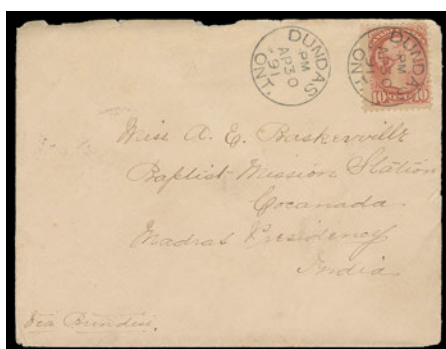 DUNDAS
PM
AP 30
91
ONT.
DUNDAS
PM
AP 30
91
ONT.
10 10
Miss A. E. Baskerville
Baptist Mission Station
Cocanada.
Madras Presidency
India
Via Brindisi.